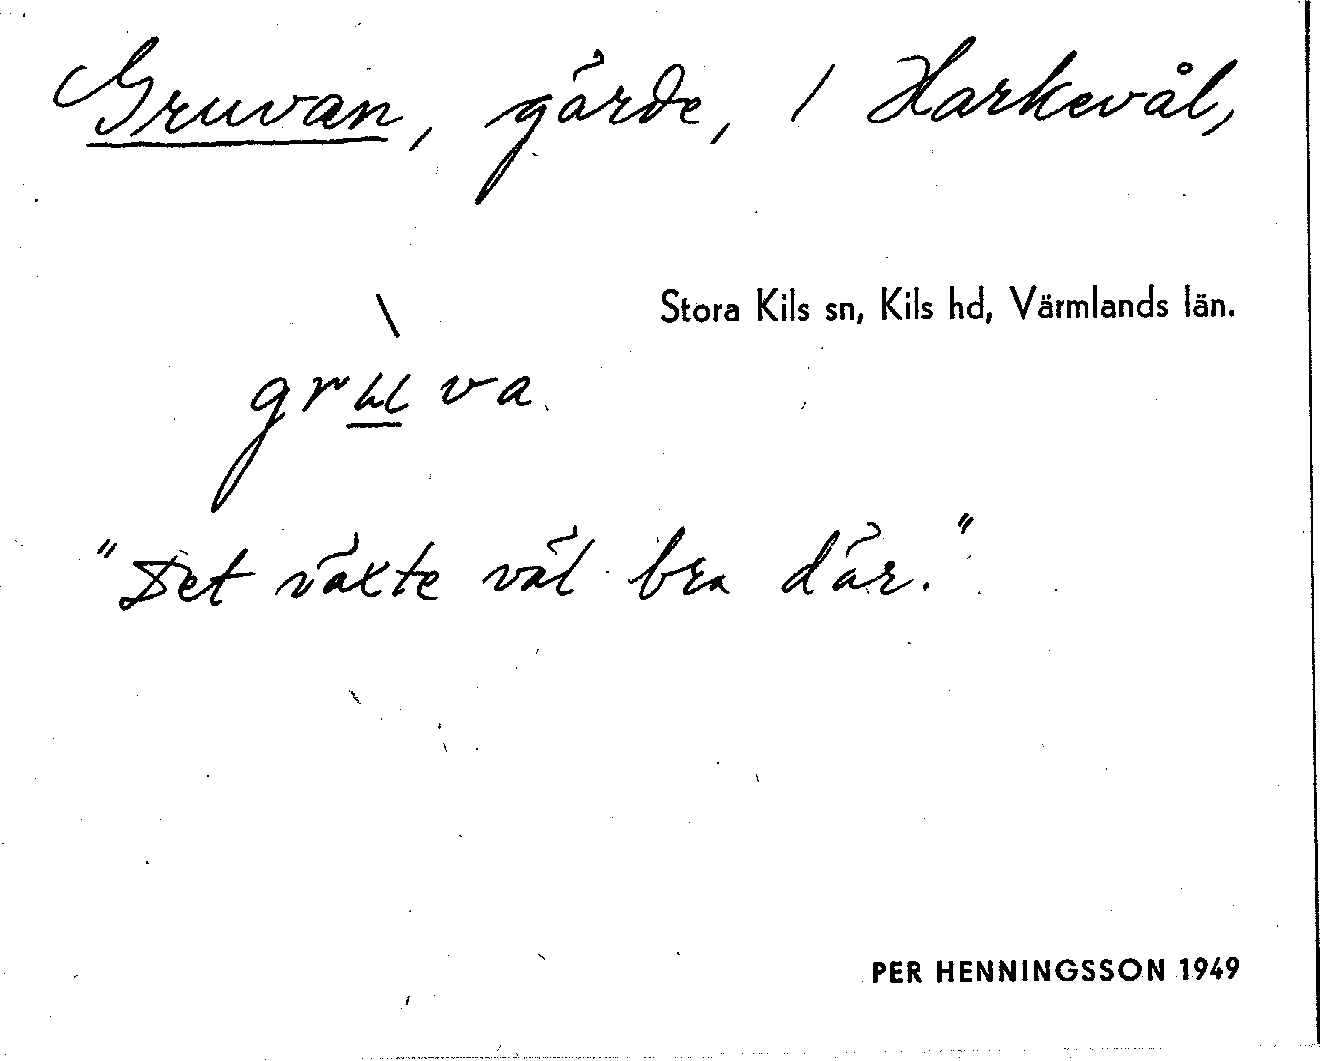 Gruvan, gärde, / Harkevål,
Stora Kils sn, Kils hd, Värmlands län.
\
gruva
"Det växte väl bra där."
PER HENNINGSSON 1949